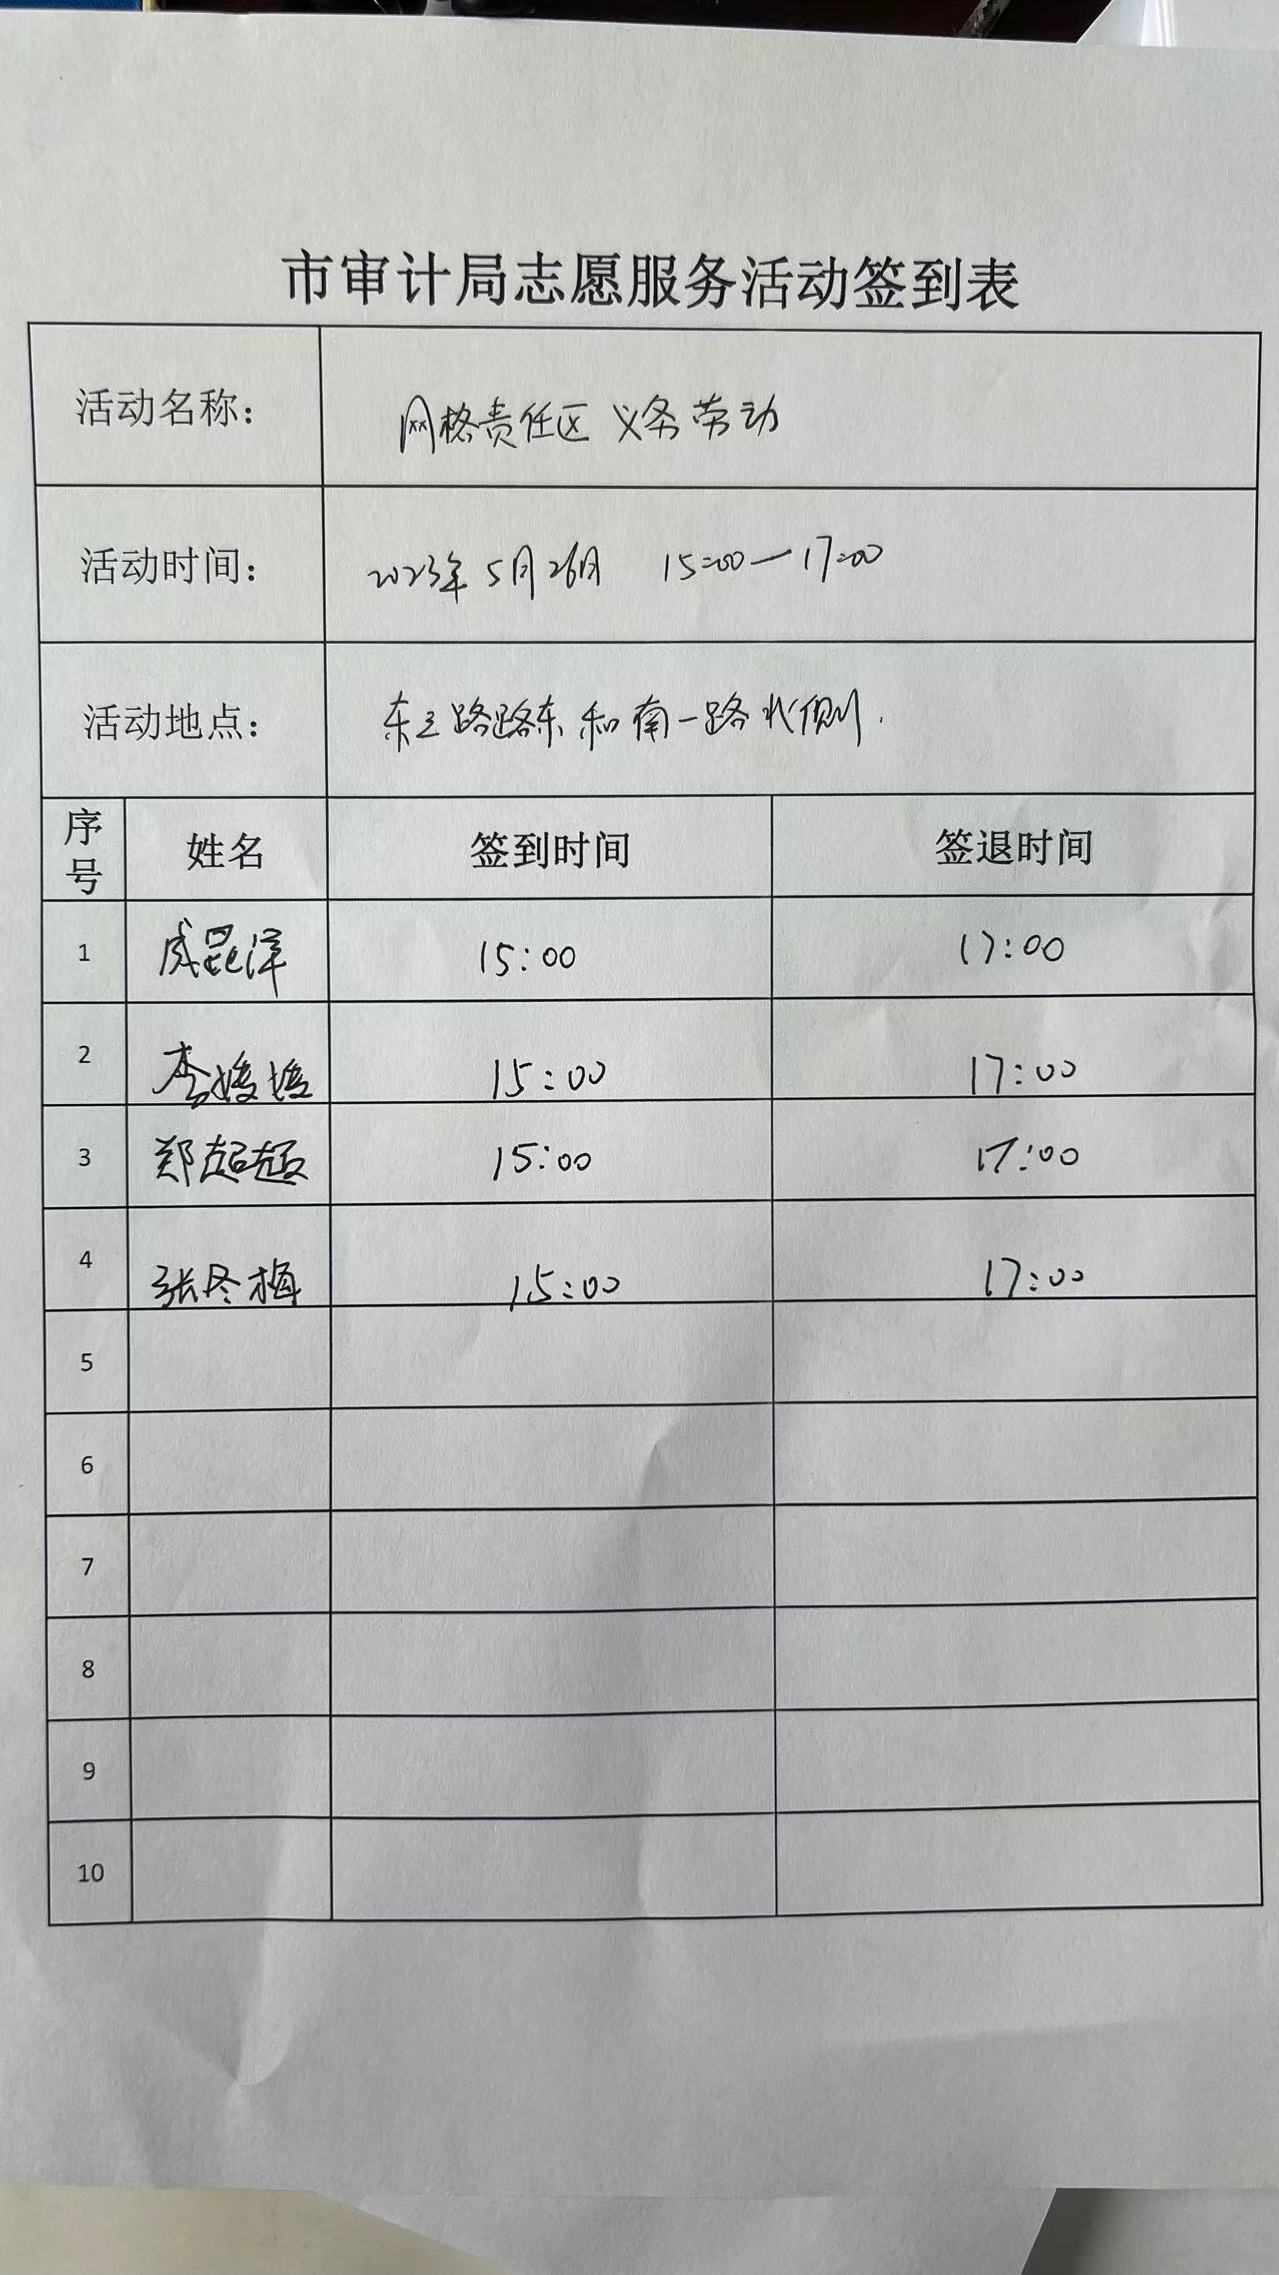 市审计局志愿服务活动签到表
活动名称： 网格责任区 义务劳动
活动时间： 2023年5月26日 15:00—17:00
活动地点： 东三路路东和南一路北侧.
序号 姓名 签到时间 签退时间
1 成昆洋 15:00 17:00
2 李媛媛 15:00 17:00
3 郑超超 15:00 17:00
4 张冬梅 15:00 17:00
5
6
7
8
9
10